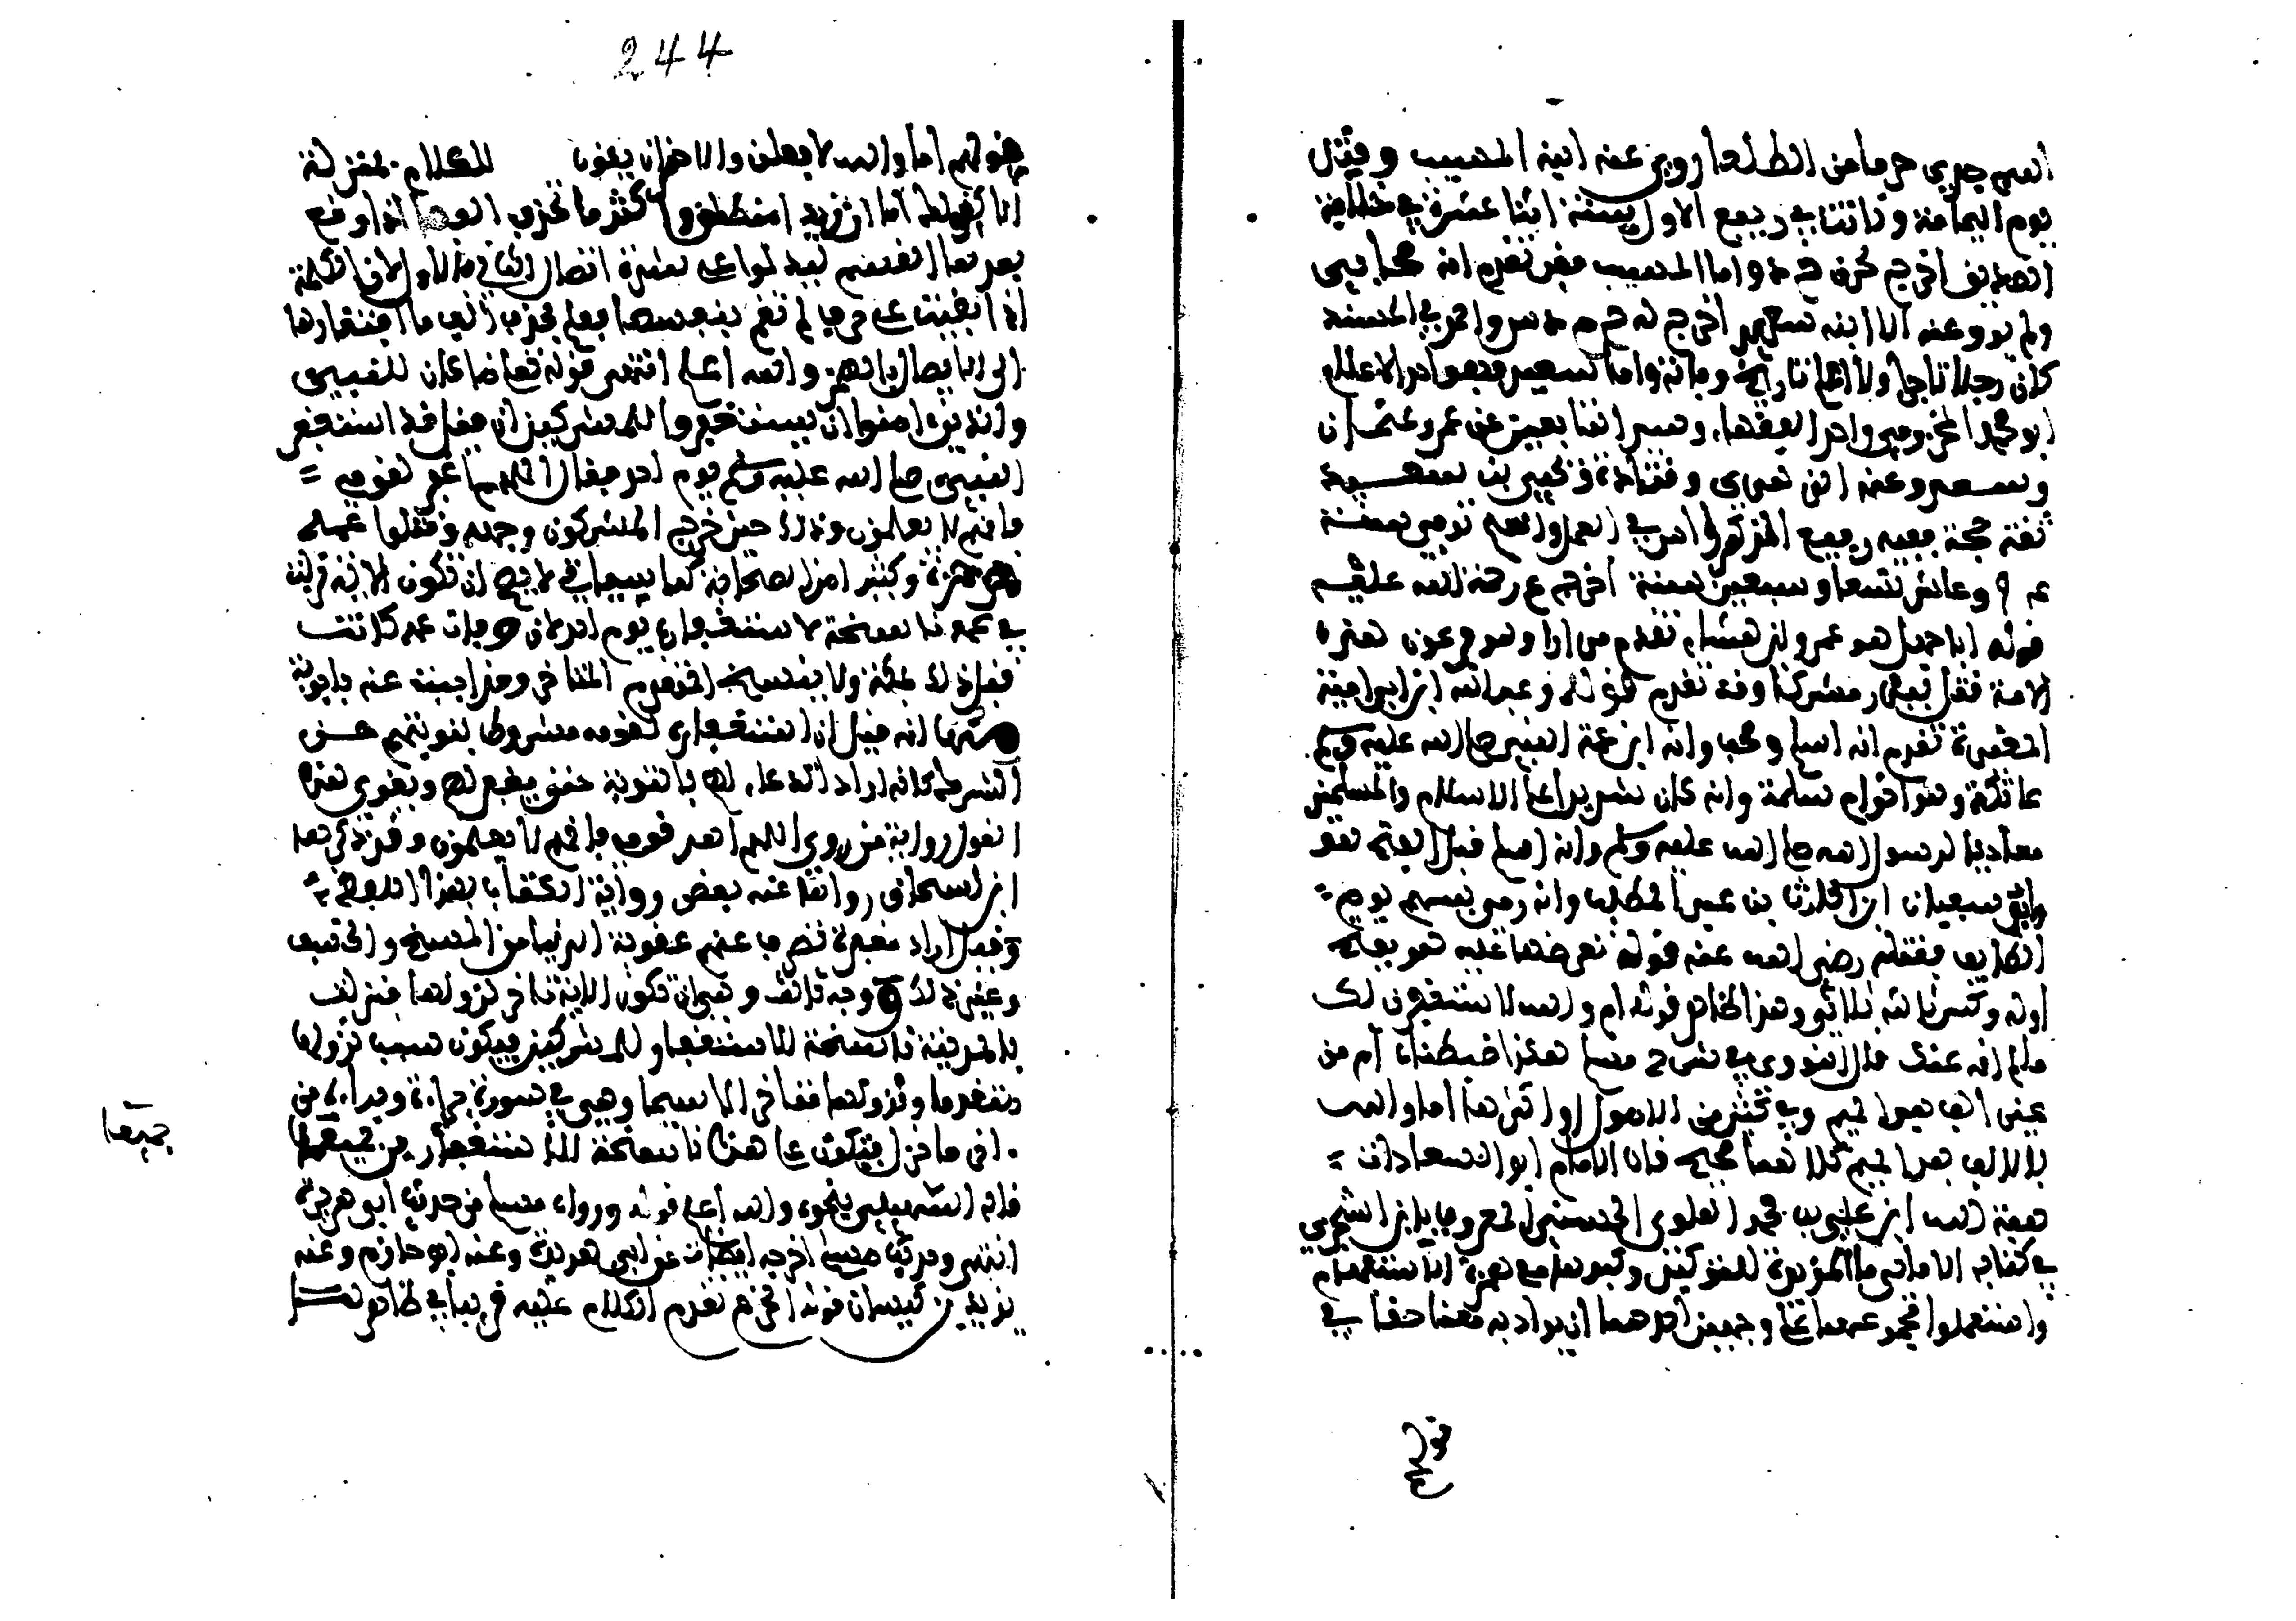 العم جدي حزما من الطلقا روى عنه ابنه المسيب وقتل
يوم اليمامة وكانت في ربيع الاول سنة اثنا عشرة في خلافة
الصديق اخرج له خ م د واما المسيب فقد تقدم انه صحابي
ولم يرو عنه الا ابنه سعيد اخرج له خ م د س واحمد في المسند
كان رجلا تاجرا ولا اعلم تاريخ وفاته واما سعيد فهو احد الاعلام
ابو محمد المخزومي واحد الفقها وسيد التابعين عن عمر وعثمان
وسعد وعنه الزهري وقتادة ويحيى بن سعيد
ثقة حجة فقيه رفيع الذكر راس في العلم والعمل توفي سنة
٩٤ وعاش تسعا وسبعين سنة اخرج ع رحمة الله عليه
قوله ابا جهل هو عمرو بن هشام تقدم مرارا وهو فرعون هذه
الامة قتل ببدر مشركا وقد تقدم قوله وعبد الله ابن ابي امية
المغيرة تقدم انه اسلم وصحب وانه ابن عمة النبي صلى الله عليه وسلم
عاتكة وهو اخو ام سلمة وانه كان شديدا على الاسلام والمسلمين
معاديا لرسول الله صلى الله عليه وسلم وانه اسلم قبل الفتح هو
وابو سفيان ابن الحارث بن عبد المطلب وانه رمي بسهم يوم =
الطايف فقتله رضي الله عنه قوله يعرضها عليه هو بفتح
اوله وكسر ثالثه ثلاثي وهذا ظاهر قوله ام والله لاستغفرن لك
مالم انه عنك قال النووي في شرح مسلم هكذا ضبطناه ام من
غير الف بعد الميم وفي كثير من الاصول او اكثرها اما والله
بالالف بعد الميم وكلاهما صحيح قال الامام ابو السعادات =
هبة الله ابن علي بن محمد العلوي الحسني المعروف بابن الشجري
في كتابه الامالي ما المزيدة للتوكيد ركبوها مع همزة الاستفهام
واستعملوا مجموعهما على وجهين احدهما ان يراد به معنى حقا في
قولهم
244
قولهم اما والله لافعلن والاخر ان يكون للكلام بمنزلة
الا كقولك اما ان زيدا منطلق واكثر ما تحذف الفها اذا وقع
بعدها القسم ليدلوا على شدة اتصال الثاني بالاول لان الكلمة
اذا بقيت على حرف لم تقم بنفسها فعلم بحذف الف ما افتقارها
الى الاتصال بالهمز والله اعلم انتهى قوله تعالى ما كان للنبي
والذين امنوا ان يستغفروا للمشركين ان قيل قد استغفر
النبي صلى الله عليه وسلم يوم احد فقال اللهم اغفر لقومي =
فانهم لا يعلمون وذلك حين جرح المشركون وجهه وقتلوا عمه
حمزة وكثيرا من الصحابة كما سياتي لا يصح ان تكون الاية نزلت
في عمه ناسخة لاستغفاره يوم احد لان وفات عمه كانت
قبل ذلك بمكة ولا ينسخ المتقدم المتاخر وقد اجيب عنه باجوبة
منها انه قيل ان استغفاره لقومه مشروط بتوبتهم من
الشرك كانه اراد الدعا لهم بالتوبة حتى يغفر لهم ويقوي هذا
القول رواية من روى اللهم اهد قومي فانهم لا يعلمون وقد ذكرها
ابن اسحاق رواها عنه بعض رواة الكتاب بهذا اللفظ
وقيل اراد مغفرة تصرف عنهم عقوبة الدنيا من المسخ والخسف
وغير ذلك ووجه ثالث وهو ان تكون الاية تاخر نزولها فنزلت
بالمدينة ناسخة للاستغفار للمشركين فيكون سبب نزولها
متقدما ونزولها متاخر الا سيما وهي في سورة براءة وبراءة من
اخر ما نزل فتكون على هذا ناسخة للاستغفار من جميعها
قاله السهيلي بنحوه والله اعلم قوله ورواه مسلم من حديث ابي هريرة
انتهى وحديث مسلم اخرجه ايضا ت عن ابي هريرة وعنه ابو حازم وعنه
يزيد بن كيسان قوله الجزع تقدم الكلام عليه قريبا في ظاهرها
جميعا